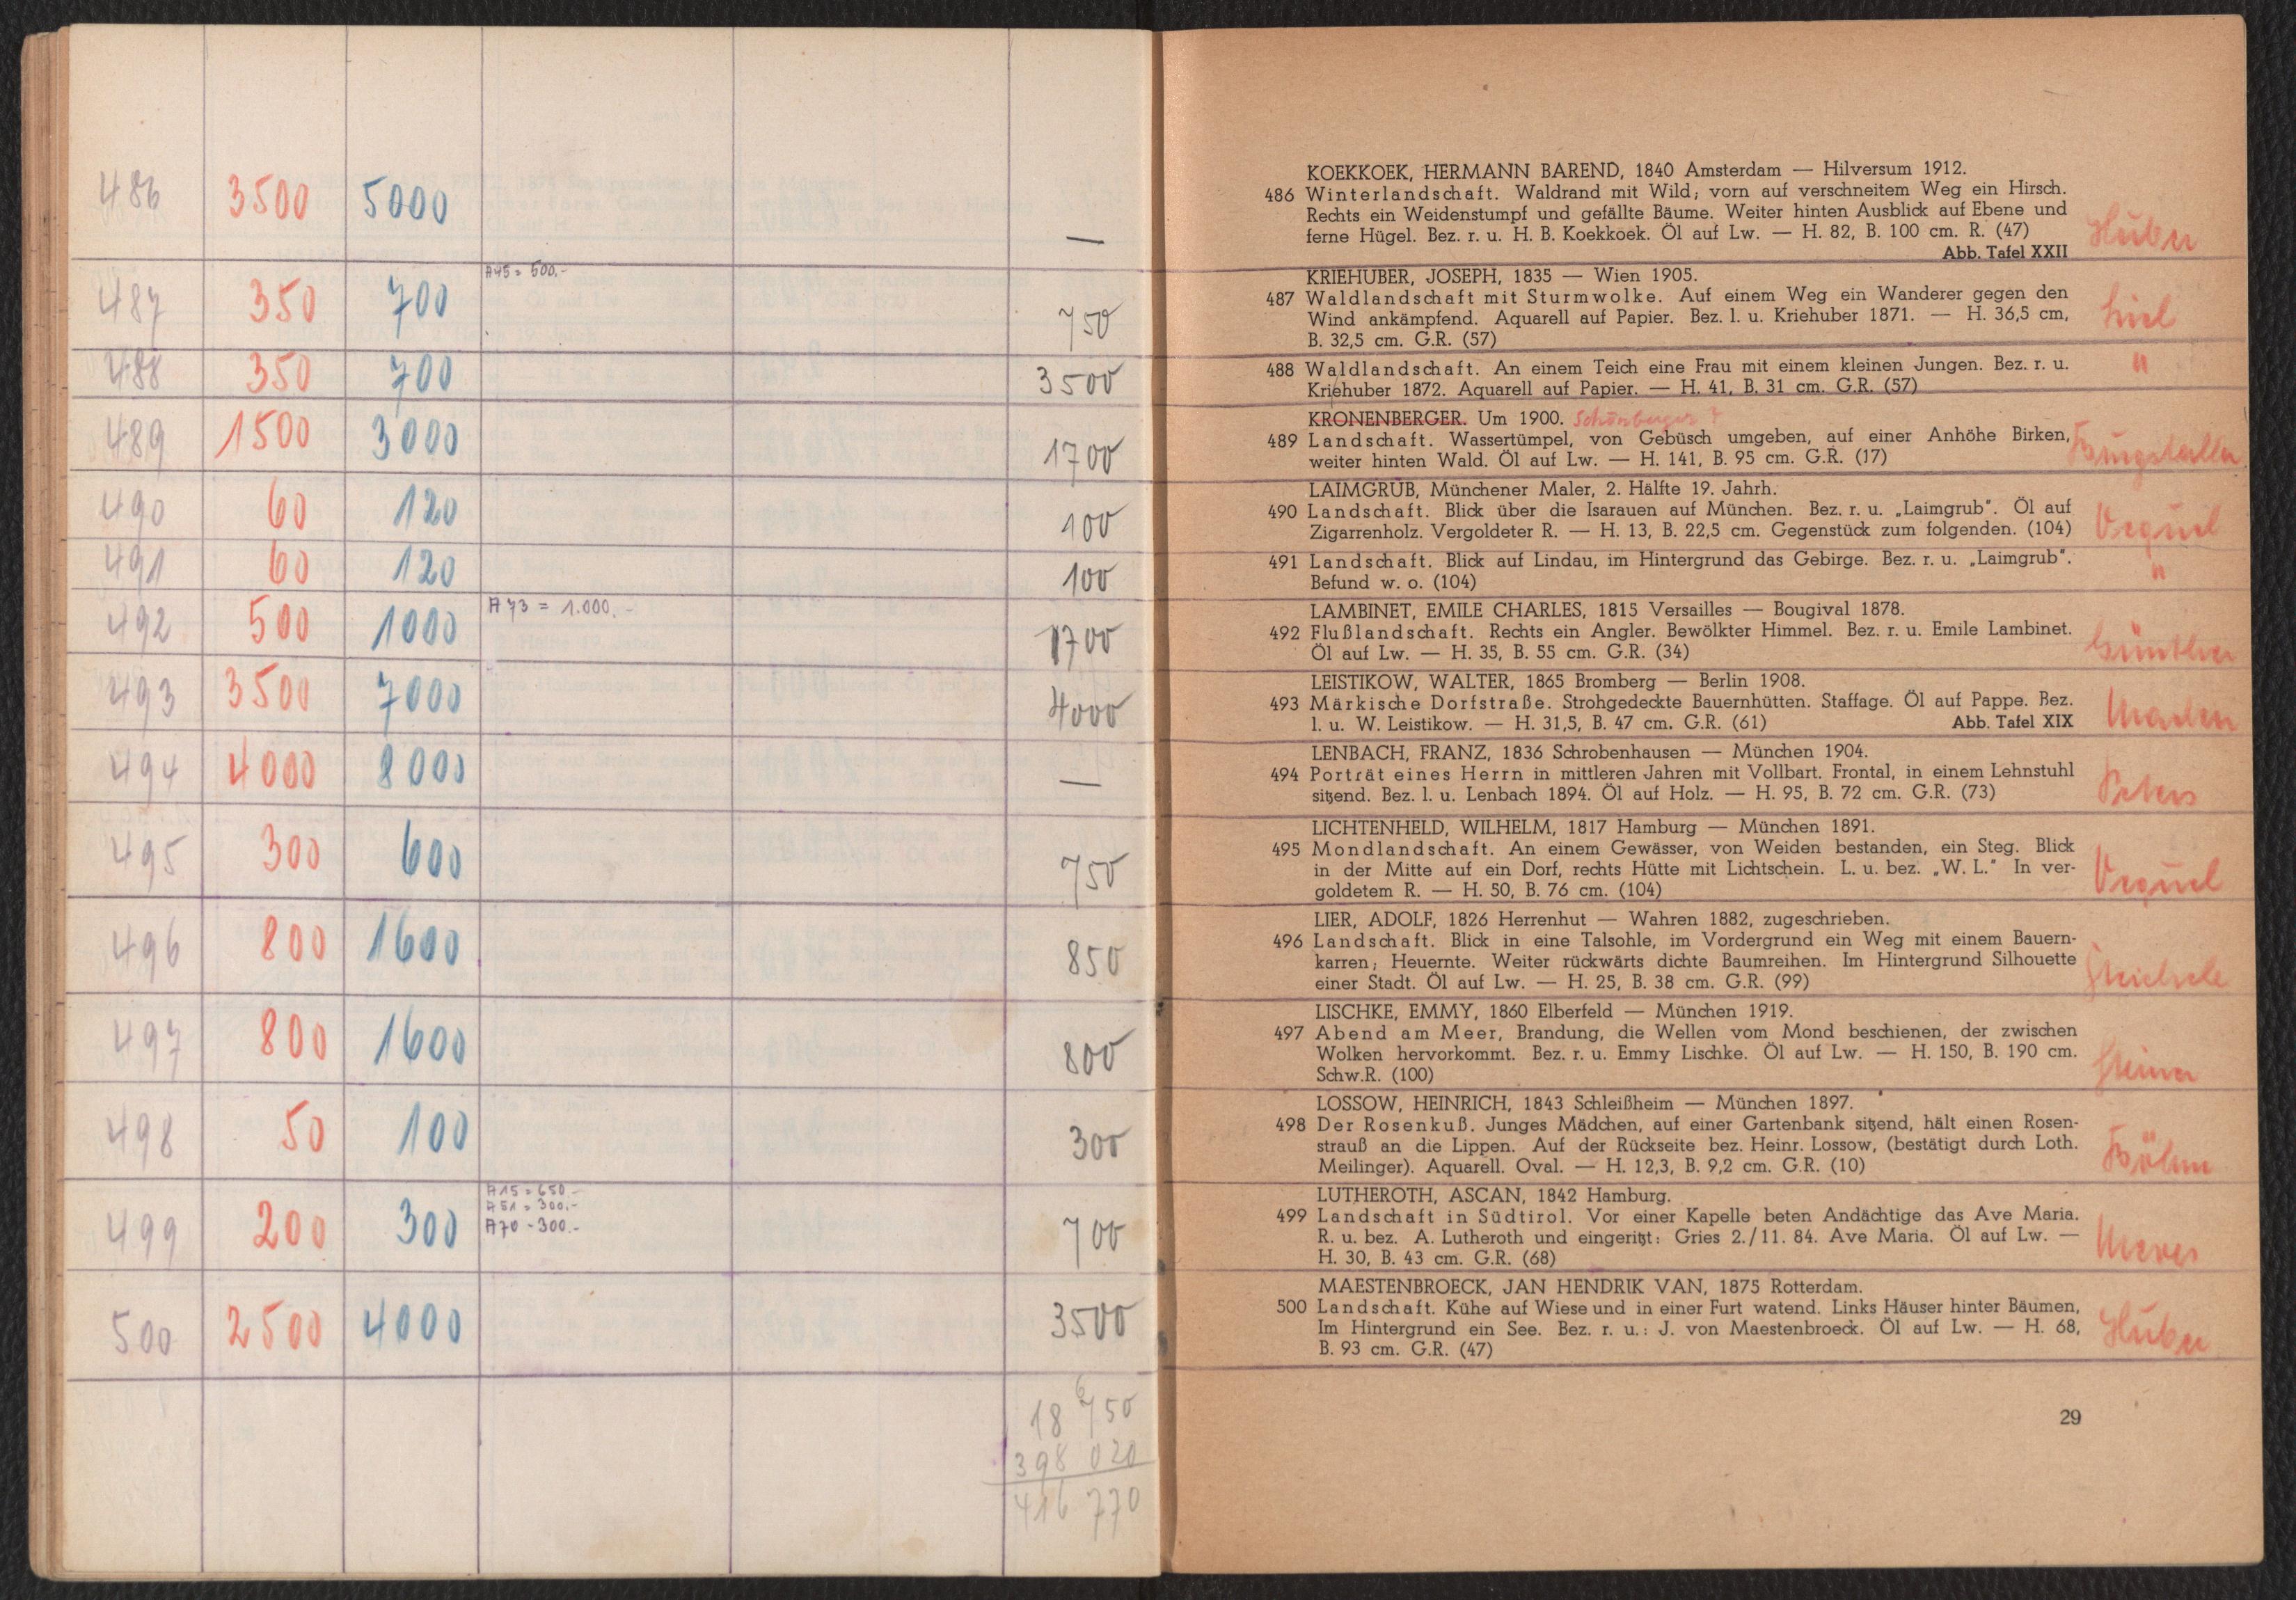 486 3500 5000 —
A45 = 500.-
487 350 700 750
488 350 700 3500
489 1500 3000 1700
490 60 120 100
491 60 120 100
492 500 1000 A73 = 1.000.- 1700
493 3500 7000 4000
494 4000 8000 —
495 300 600 750
496 800 1600 850
497 800 1600 800
498 50 100 300
A15 = 650.-
A51 = 300.-
499 200 300 A70 - 300.- 700
500 2500 4000 3500
18 750
398 020
416 770
KOEKKOEK, HERMANN BAREND, 1840 Amsterdam — Hilversum 1912.
486 Winterlandschaft. Waldrand mit Wild; vorn auf verschneitem Weg ein Hirsch.
Rechts ein Weidenstumpf und gefällte Bäume. Weiter hinten Ausblick auf Ebene und
ferne Hügel. Bez. r. u. H. B. Koekkoek. Öl auf Lw. — H. 82, B. 100 cm. R. (47) Huber
Abb. Tafel XXII
KRIEHUBER, JOSEPH, 1835 — Wien 1905.
487 Waldlandschaft mit Sturmwolke. Auf einem Weg ein Wanderer gegen den
Wind ankämpfend. Aquarell auf Papier. Bez. l. u. Kriehuber 1871. — H. 36,5 cm,
B. 32,5 cm. G.R. (57)
488 Waldlandschaft. An einem Teich eine Frau mit einem kleinen Jungen. Bez. r. u. "
Kriehuber 1872. Aquarell auf Papier. — H. 41, B. 31 cm. G.R. (57)
KRONENBERGER. Um 1900. Schönberger ?
489 Landschaft. Wassertümpel, von Gebüsch umgeben, auf einer Anhöhe Birken,
weiter hinten Wald. Öl auf Lw. — H. 141, B. 95 cm. G.R. (17)
LAIMGRUB, Münchener Maler, 2. Hälfte 19. Jahrh.
490 Landschaft. Blick über die Isarauen auf München. Bez. r. u. „Laimgrub". Öl auf
Zigarrenholz. Vergoldeter R. — H. 13, B. 22,5 cm. Gegenstück zum folgenden. (104) Vequel
491 Landschaft. Blick auf Lindau, im Hintergrund das Gebirge. Bez. r. u. „Laimgrub".
Befund w. o. (104) "
LAMBINET, EMILE CHARLES, 1815 Versailles — Bougival 1878.
492 Flußlandschaft. Rechts ein Angler. Bewölkter Himmel. Bez. r. u. Emile Lambinet.
Öl auf Lw. — H. 35, B. 55 cm. G.R. (34) Günther
LEISTIKOW, WALTER, 1865 Bromberg — Berlin 1908.
493 Märkische Dorfstraße. Strohgedeckte Bauernhütten. Staffage. Öl auf Pappe. Bez.
l. u. W. Leistikow. — H. 31,5, B. 47 cm. G.R. (61) Abb. Tafel XIX
LENBACH, FRANZ, 1836 Schrobenhausen — München 1904.
494 Porträt eines Herrn in mittleren Jahren mit Vollbart. Frontal, in einem Lehnstuhl
sitzend. Bez. l. u. Lenbach 1894. Öl auf Holz. — H. 95, B. 72 cm. G.R. (73) Peters
LICHTENHELD, WILHELM, 1817 Hamburg — München 1891.
495 Mondlandschaft. An einem Gewässer, von Weiden bestanden, ein Steg. Blick
in der Mitte auf ein Dorf, rechts Hütte mit Lichtschein. L. u. bez. „W. L." In ver-
goldetem R. — H. 50, B. 76 cm. (104) Vequel
LIER, ADOLF, 1826 Herrenhut — Wahren 1882, zugeschrieben.
496 Landschaft. Blick in eine Talsohle, im Vordergrund ein Weg mit einem Bauern-
karren; Heuernte. Weiter rückwärts dichte Baumreihen. Im Hintergrund Silhouette
einer Stadt. Öl auf Lw. — H. 25, B. 38 cm. G.R. (99)
LISCHKE, EMMY, 1860 Elberfeld — München 1919.
497 Abend am Meer, Brandung, die Wellen vom Mond beschienen, der zwischen
Wolken hervorkommt. Bez. r. u. Emmy Lischke. Öl auf Lw. — H. 150, B. 190 cm.
Schw.R. (100) Steiner
LOSSOW, HEINRICH, 1843 Schleißheim — München 1897.
498 Der Rosenkuß. Junges Mädchen, auf einer Gartenbank sitzend, hält einen Rosen-
strauß an die Lippen. Auf der Rückseite bez. Heinr. Lossow, (bestätigt durch Loth.
Meilinger). Aquarell. Oval. — H. 12,3, B. 9,2 cm. G.R. (10) Böhm
LUTHEROTH, ASCAN, 1842 Hamburg.
499 Landschaft in Südtirol. Vor einer Kapelle beten Andächtige das Ave Maria.
R. u. bez. A. Lutheroth und eingeritzt: Gries 2./11. 84. Ave Maria. Öl auf Lw. —
H. 30, B. 43 cm. G.R. (68)
MAESTENBROECK, JAN HENDRIK VAN, 1875 Rotterdam.
500 Landschaft. Kühe auf Wiese und in einer Furt watend. Links Häuser hinter Bäumen,
Im Hintergrund ein See. Bez. r. u.: J. von Maestenbroeck. Öl auf Lw. — H. 68,
B. 93 cm. G.R. (47) Huber
29